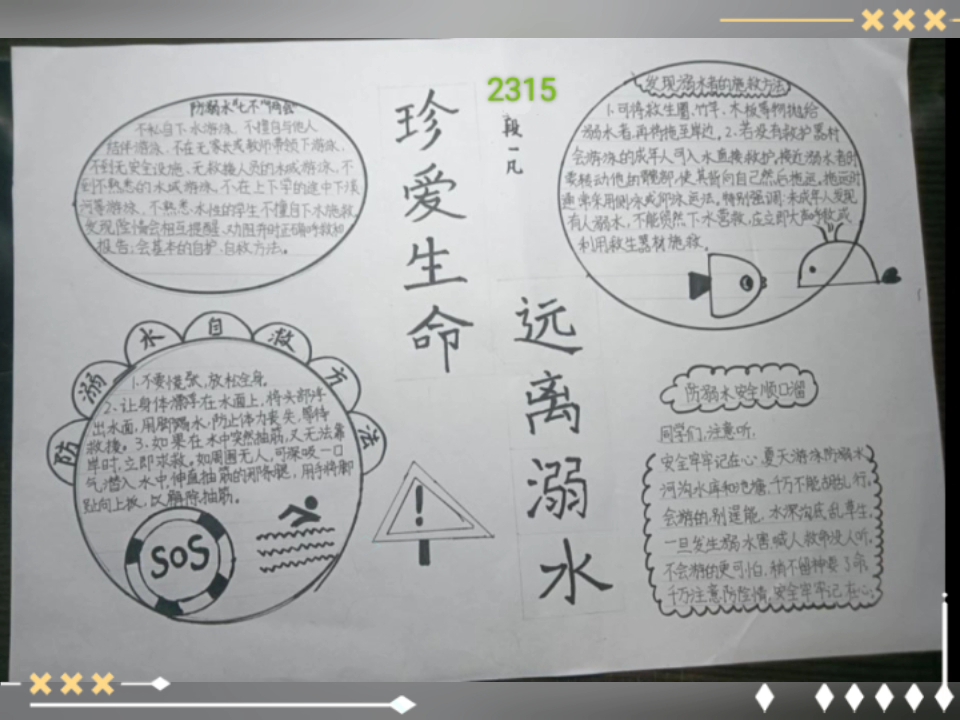 珍爱生命
远离溺水
2315
段一凡
防溺水"七不"两会"
不私自下水游泳、不擅自与他人
结伴游泳、不在无家长或教师带领下游泳、
不到无安全设施、无救援人员的水域游泳、不
到不熟悉的水域游泳、不在上下学的途中下溪
河等游泳、不熟悉水性的学生不擅自下水施救。
发现险情会相互提醒、劝阻并时正确呼救和
报告;会基本的自护、自救方法。
发现溺水者的施救方法
1.可将救生圈、竹竿、木板等物抛给
溺水者,再将拖至岸边。2.若没有救护器材
会游泳的成年人可入水直接救护。接近溺水者时
要转动他的髋部,使其背向自己然后拖运。拖运时
通常采用侧泳或仰泳运法。特别强调:未成年人发现
有人溺水,不能贸然下水营救,应立即大声呼救或
利用救生器材施救。
防溺水自救方法
1.不要慌张,放松全身。
2、让身体漂浮在水面上,将头部浮
出水面,用脚踢水,防止体力丧失,等待
救援。3、如果在水中突然抽筋,又无法靠
岸时,立即求救。如周围无人,可深吸一口
气潜入水中,伸直抽筋的那条腿,用手将脚
趾向上扳,以解除抽筋。
SOS
!
防溺水安全顺口溜
同学们,注意听,
安全牢牢记在心。夏天游泳防溺水
河沟水库和池塘,千万不能胡乱行。
会游的,别逞能,水深沟底乱草生,
一旦发生溺水害,喊人救命没人听。
不会游的更可怕,稍不留神要了命
千万注意防险情,安全牢牢记在心。